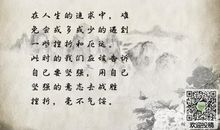 在人生的追求中，难
免会或多或少的遇到
一些挫折和厄运，
此时我们应该告诉
自己要坚强，用自己
坚强的意志去战胜
挫折，毫不气馁。
欢迎投稿